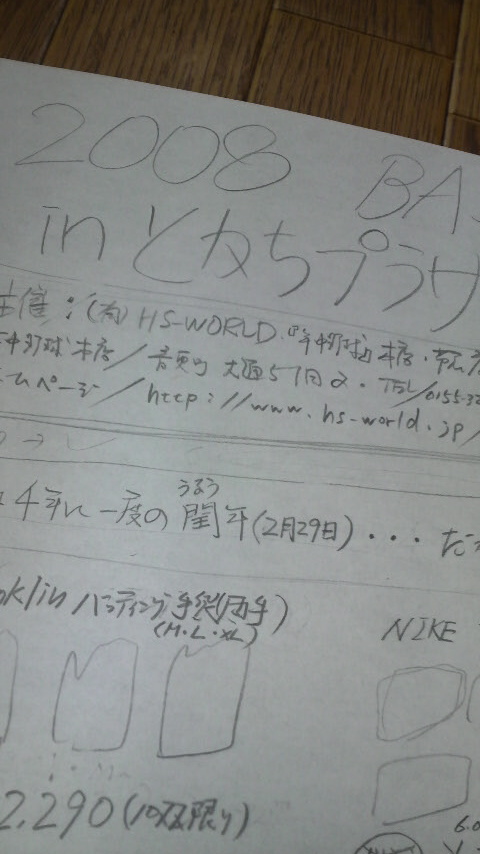 2008 BA
in とかちプラザ
主催:(有)HS-WORLD・『年中野球』本店・
年中野球 本店/音更町 大通5丁目2・TEL/0155-32
ホームページ/http://www.hs-world.jp/
4年に一度の閏年(2月29日)・・・だ
うるう
バッティング手袋(両手)
(M・L・XL)
NIKE
2,290(10双限り)
6.0